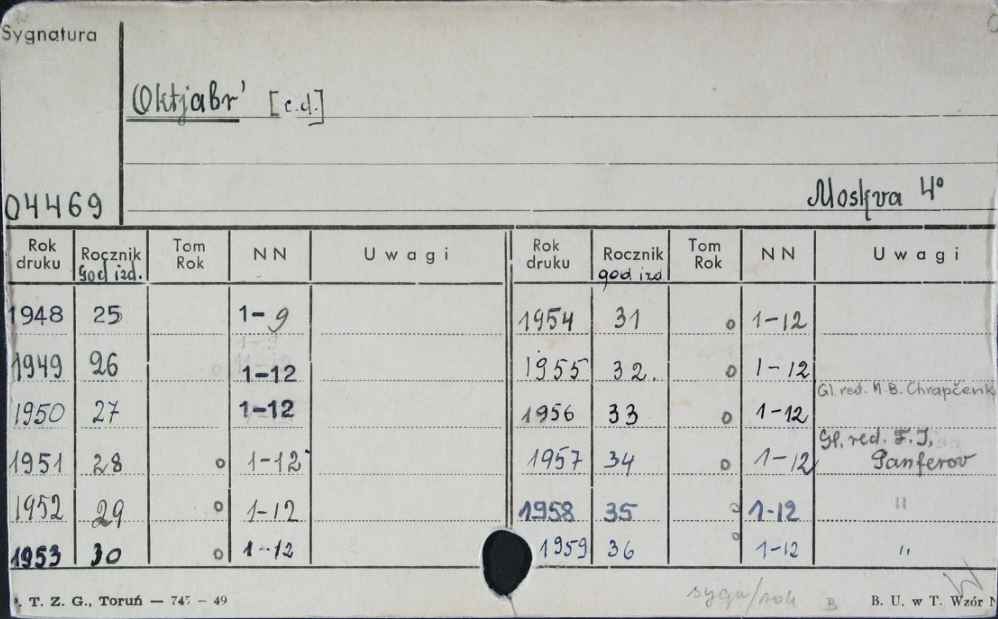 Sygnatura
Oktjabr' [c.d.]
04469
Moskva 4°
Rok druku Rocznik god izd. Tom Rok NN Uwagi Rok druku Rocznik god izd Tom Rok NN Uwagi
1948 25 1-9 1954 31 o 1-12
1949 26 o 1-12 1955 32. o 1-12
Gl. red. M.B. Chrapčenk
1950 27 1-12 1956 33 o 1-12
1951 28 o 1-12 1957 34 o 1-12 Gl. red. F.I. Panferov
1952 29 o 1-12 1958 35 o 1-12 "
1953 30 o 1-12 1959 36 o 1-12 "
T. Z. G., Toruń — 747 - 49
sygn/rok B B. U. w T. Wzór N